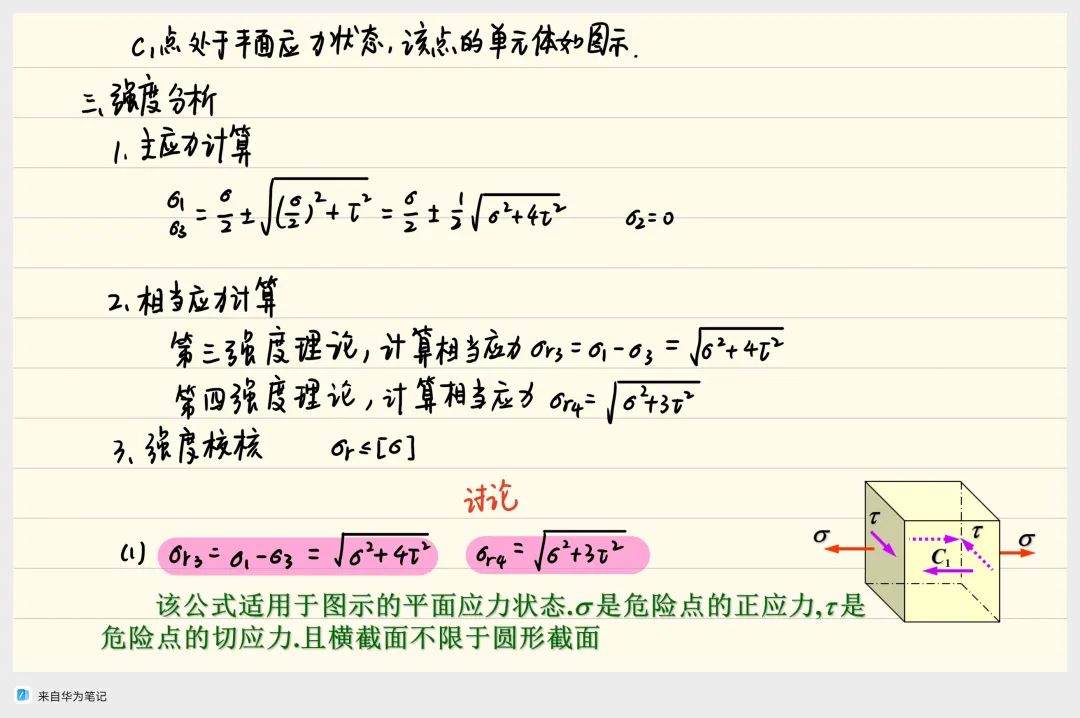 C₁点处于平面应力状态,该点的单元体如图示.
三、强度分析
1、主应力计算
σ₁
σ₃ = σ/2 ± √((σ/2)² + τ²) = σ/2 ± 1/2 √(σ²+4τ²) σ₂=0
2、相当应力计算
第三强度理论,计算相当应力 σr3 = σ₁-σ₃ = √(σ²+4τ²)
第四强度理论,计算相当应力 σr4 = √(σ²+3τ²)
3、强度校核 σr≤[σ]
讨论
(1) σr3 = σ₁-σ₃ = √(σ²+4τ²) σr4 = √(σ²+3τ²)
σ τ C₁ τ σ
该公式适用于图示的平面应力状态.σ是危险点的正应力,τ是
危险点的切应力.且横截面不限于圆形截面
来自华为笔记